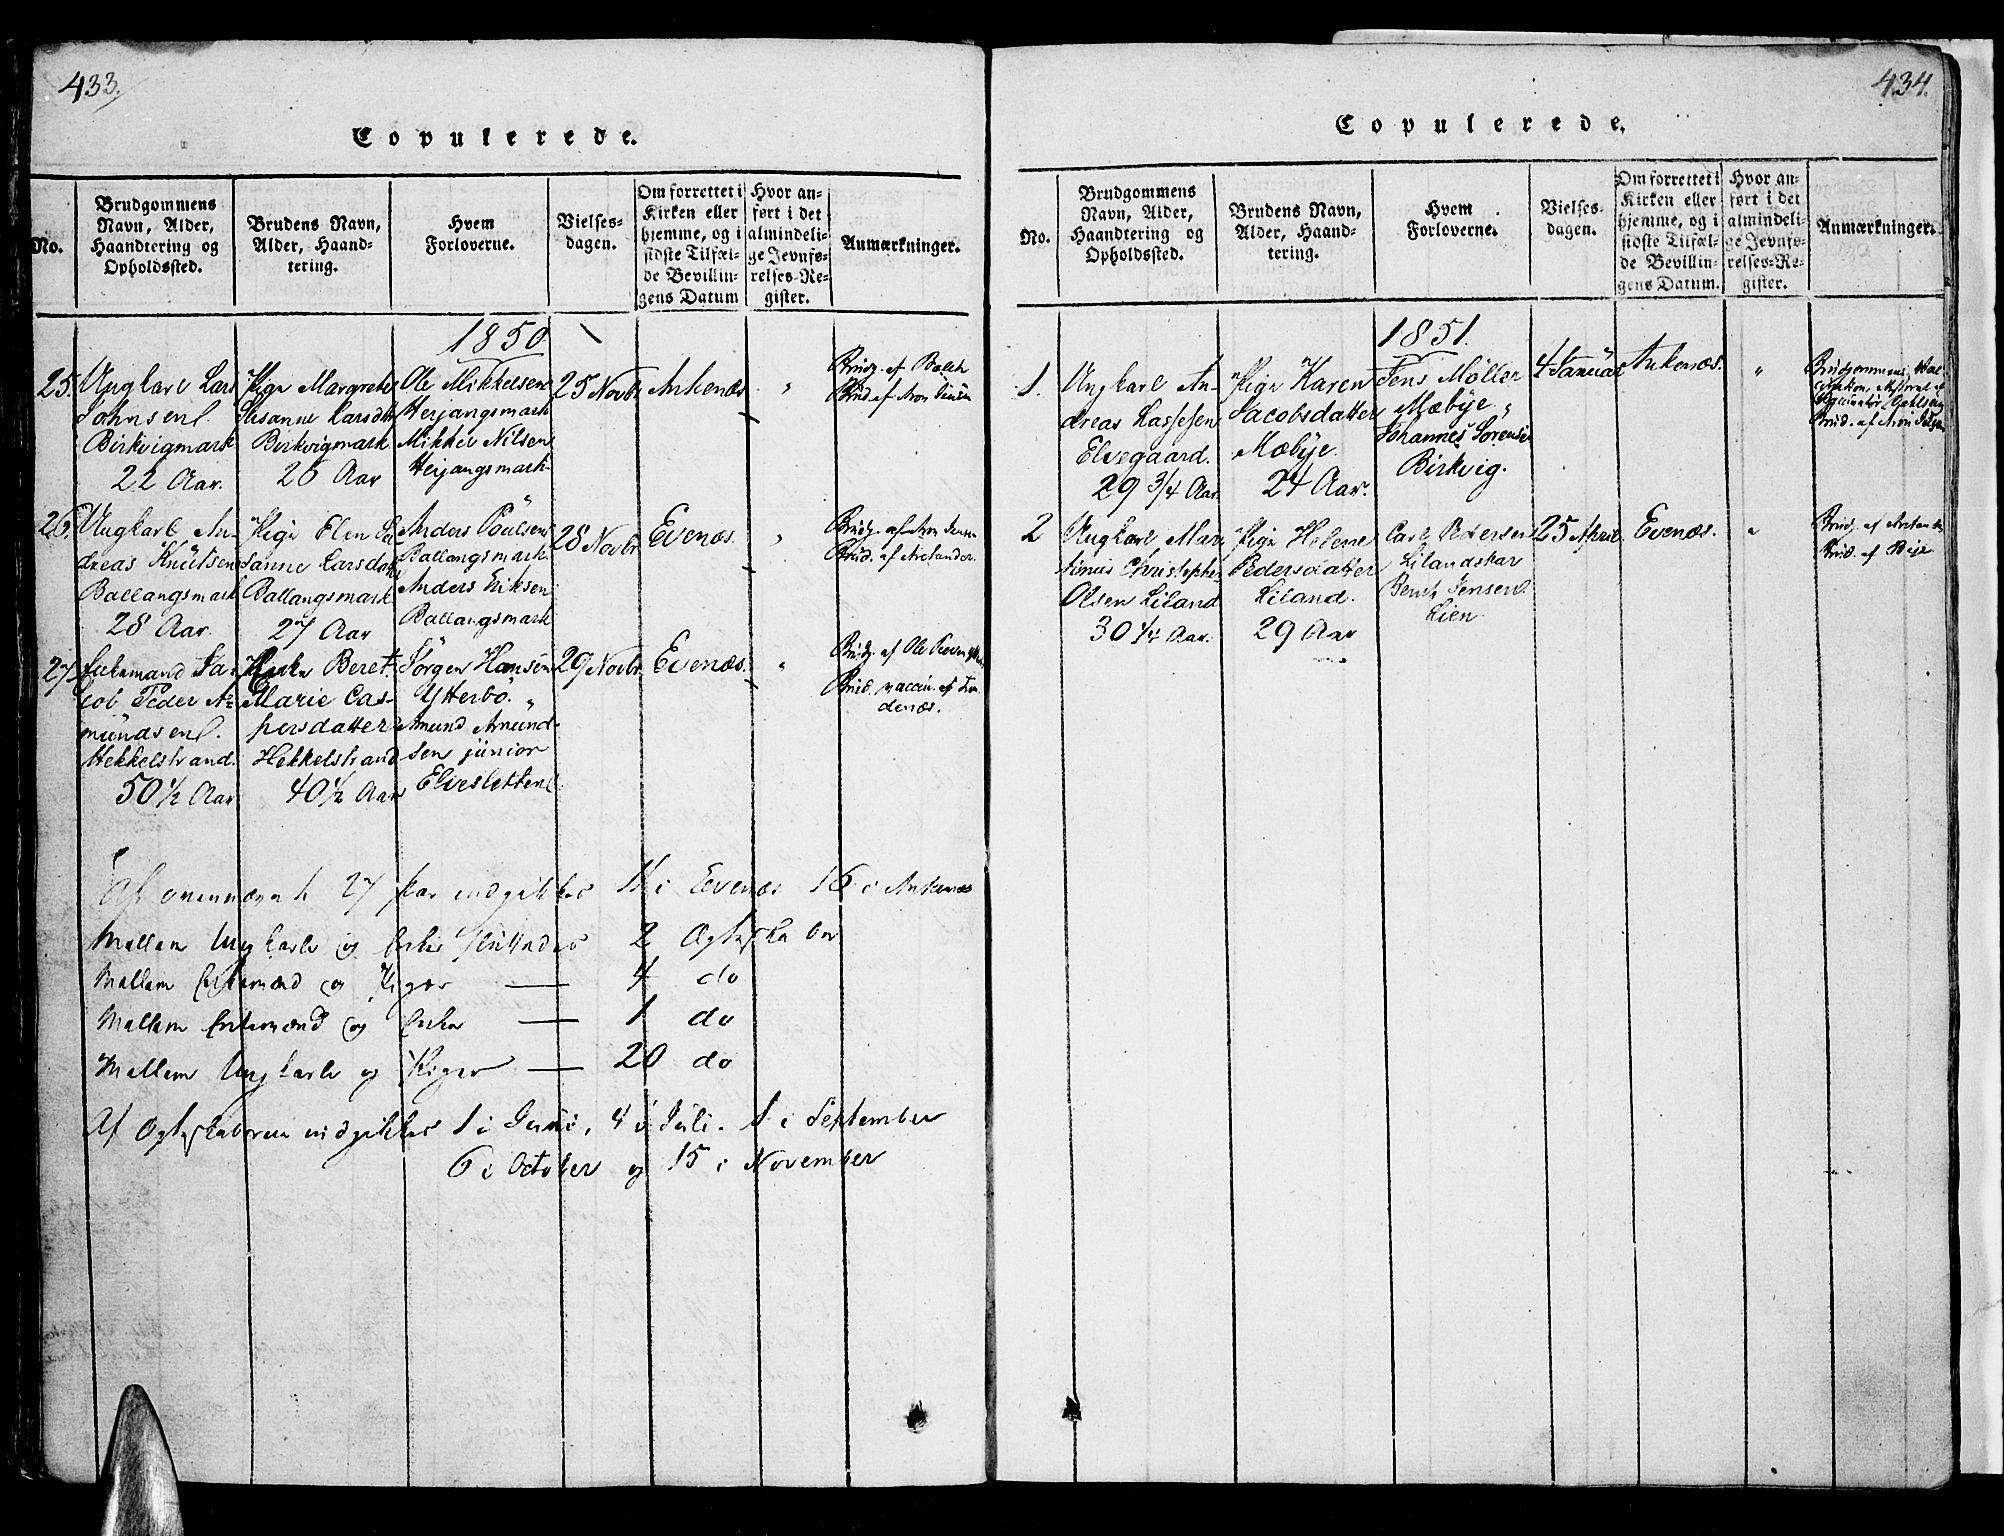 433.
Copulerede.
No.
Brudgommens
Navn, Alder,
Haandtering og
Opholdssted.
Brudens Navn,
Alder, Haand-
tering.
Hvem
Forloverne.
Vielses-
dagen.
Om forrettet i
Kirken eller
hjemme, og i
sidste Tilfæl-
de Bevillin-
gens Datum
Hvor an-
ført i det
almindeli-
ge Jevnfø-
relses-Re-
gister.
Anmærkninger.
1850
25. Ungkarl Lars
Johnsen
Birkvigmark
22 Aar.
Pige Margrethe
Susanne Larsdtr
Birkvigmark
26 Aar
Ole Mikkelsen
Herjangsmark
Mikkel Nilsen
Herjangsmark
25 Novbr
Ankenæs
"
Brudg. af Balch
Brud. af Aron Jensen
26. Ungkarl An-
dreas Knütsen
Ballangsmark
28 Aar.
Pige Elen Su
sanne Larsdatr
Ballangsmark
27 Aar
Anders Poülsen
Ballangsmark
Anders Eriksen
Ballangsmark
28 Novbr
Evenæs.
"
Brudg. af Aron Jensen
Brud. af Arctander.
27. Enkemand Ja-
cob Peder A-
mündsen.
Hekkelstrand.
50 1/2 Aar
Enke Beret
Marie Cas-
persdatter
Hekkelstrand
40 1/2 Aar
Jörgen Hansen
Ytterbö. "
Amund Amund-
sen jünior
Elvesletten
29 Novbr.
Evenæs.
"
Brudg. af Ole
Brud. vaccin. af Tra
denæs.
Af ovennævnte 27 Par indgikkes 11 i Evenæs 16 i Ankenæs
Mellem Ungkarle og Enker stiftedes 2 Ægteskaber
Mellem Enkemænd og Piger — 4 do
Mellem Enkemænd og Enker — 1 do
Mellem Ungkarle og Piger — 20 do
Af Ægteskaberne indgikkes 1 i Juni, 4 i Juli. 1 i September
6 i October og 15 i November
434.
Copulerede.
No.
Brudgommens
Navn, Alder,
Haandtering og
Opholdssted.
Brudens Navn,
Alder, Haand-
tering.
Hvem
Forloverne.
Vielses-
dagen.
Om forrettet i
Kirken eller
hjemme, og i
sidste Tilfæl-
de Bevillin-
gens Datum.
Hvor an-
ført i det
almindeli-
ge Jevnfø-
relses-Re-
gister.
Anmærkninger.
1851.
1. Ungkarl An-
dreas Lassesen
Elvegaard.
29 3/4 Aar.
Pige Karen
Jacobsdatter
Mæbye.
24 Aar.
Jens Möller
Mæbye "
Johannes Sörensen
Birkvig.
4 Januar
Ankenæs.
"
Brudgommens Vac
Brud. af Aron
2 Ungkarl Mar
tinus Christopher
Olsen Liland
30 1/4 Aar.
Pige Helene
Pedersdatter
Liland.
29 Aar
Carl Pedersen
Lilandskar
Bernt Jensen
Lien
25 April
Evenæs.
"
Brudg. af Arctander
Brud. af Beje